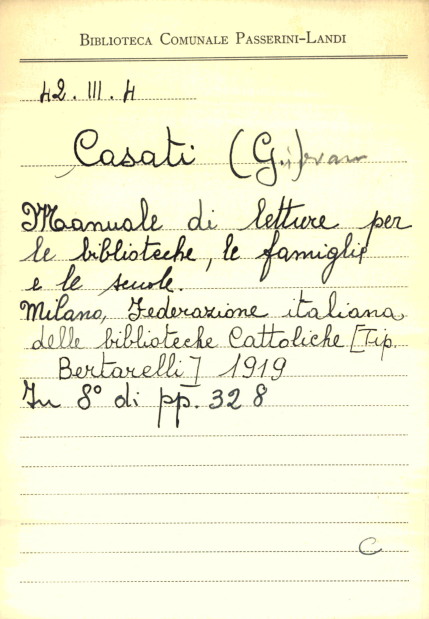 BIBLIOTECA COMUNALE PASSERINI-LANDI
42. III. 4
Casati (G.iovanni)
Manuale di letture per
le biblioteche, le famiglie
e le scuole.
Milano, Federazione italiana
delle biblioteche Cattoliche [Tip.
Bertarelli] 1919
In 8° di pp. 328
C